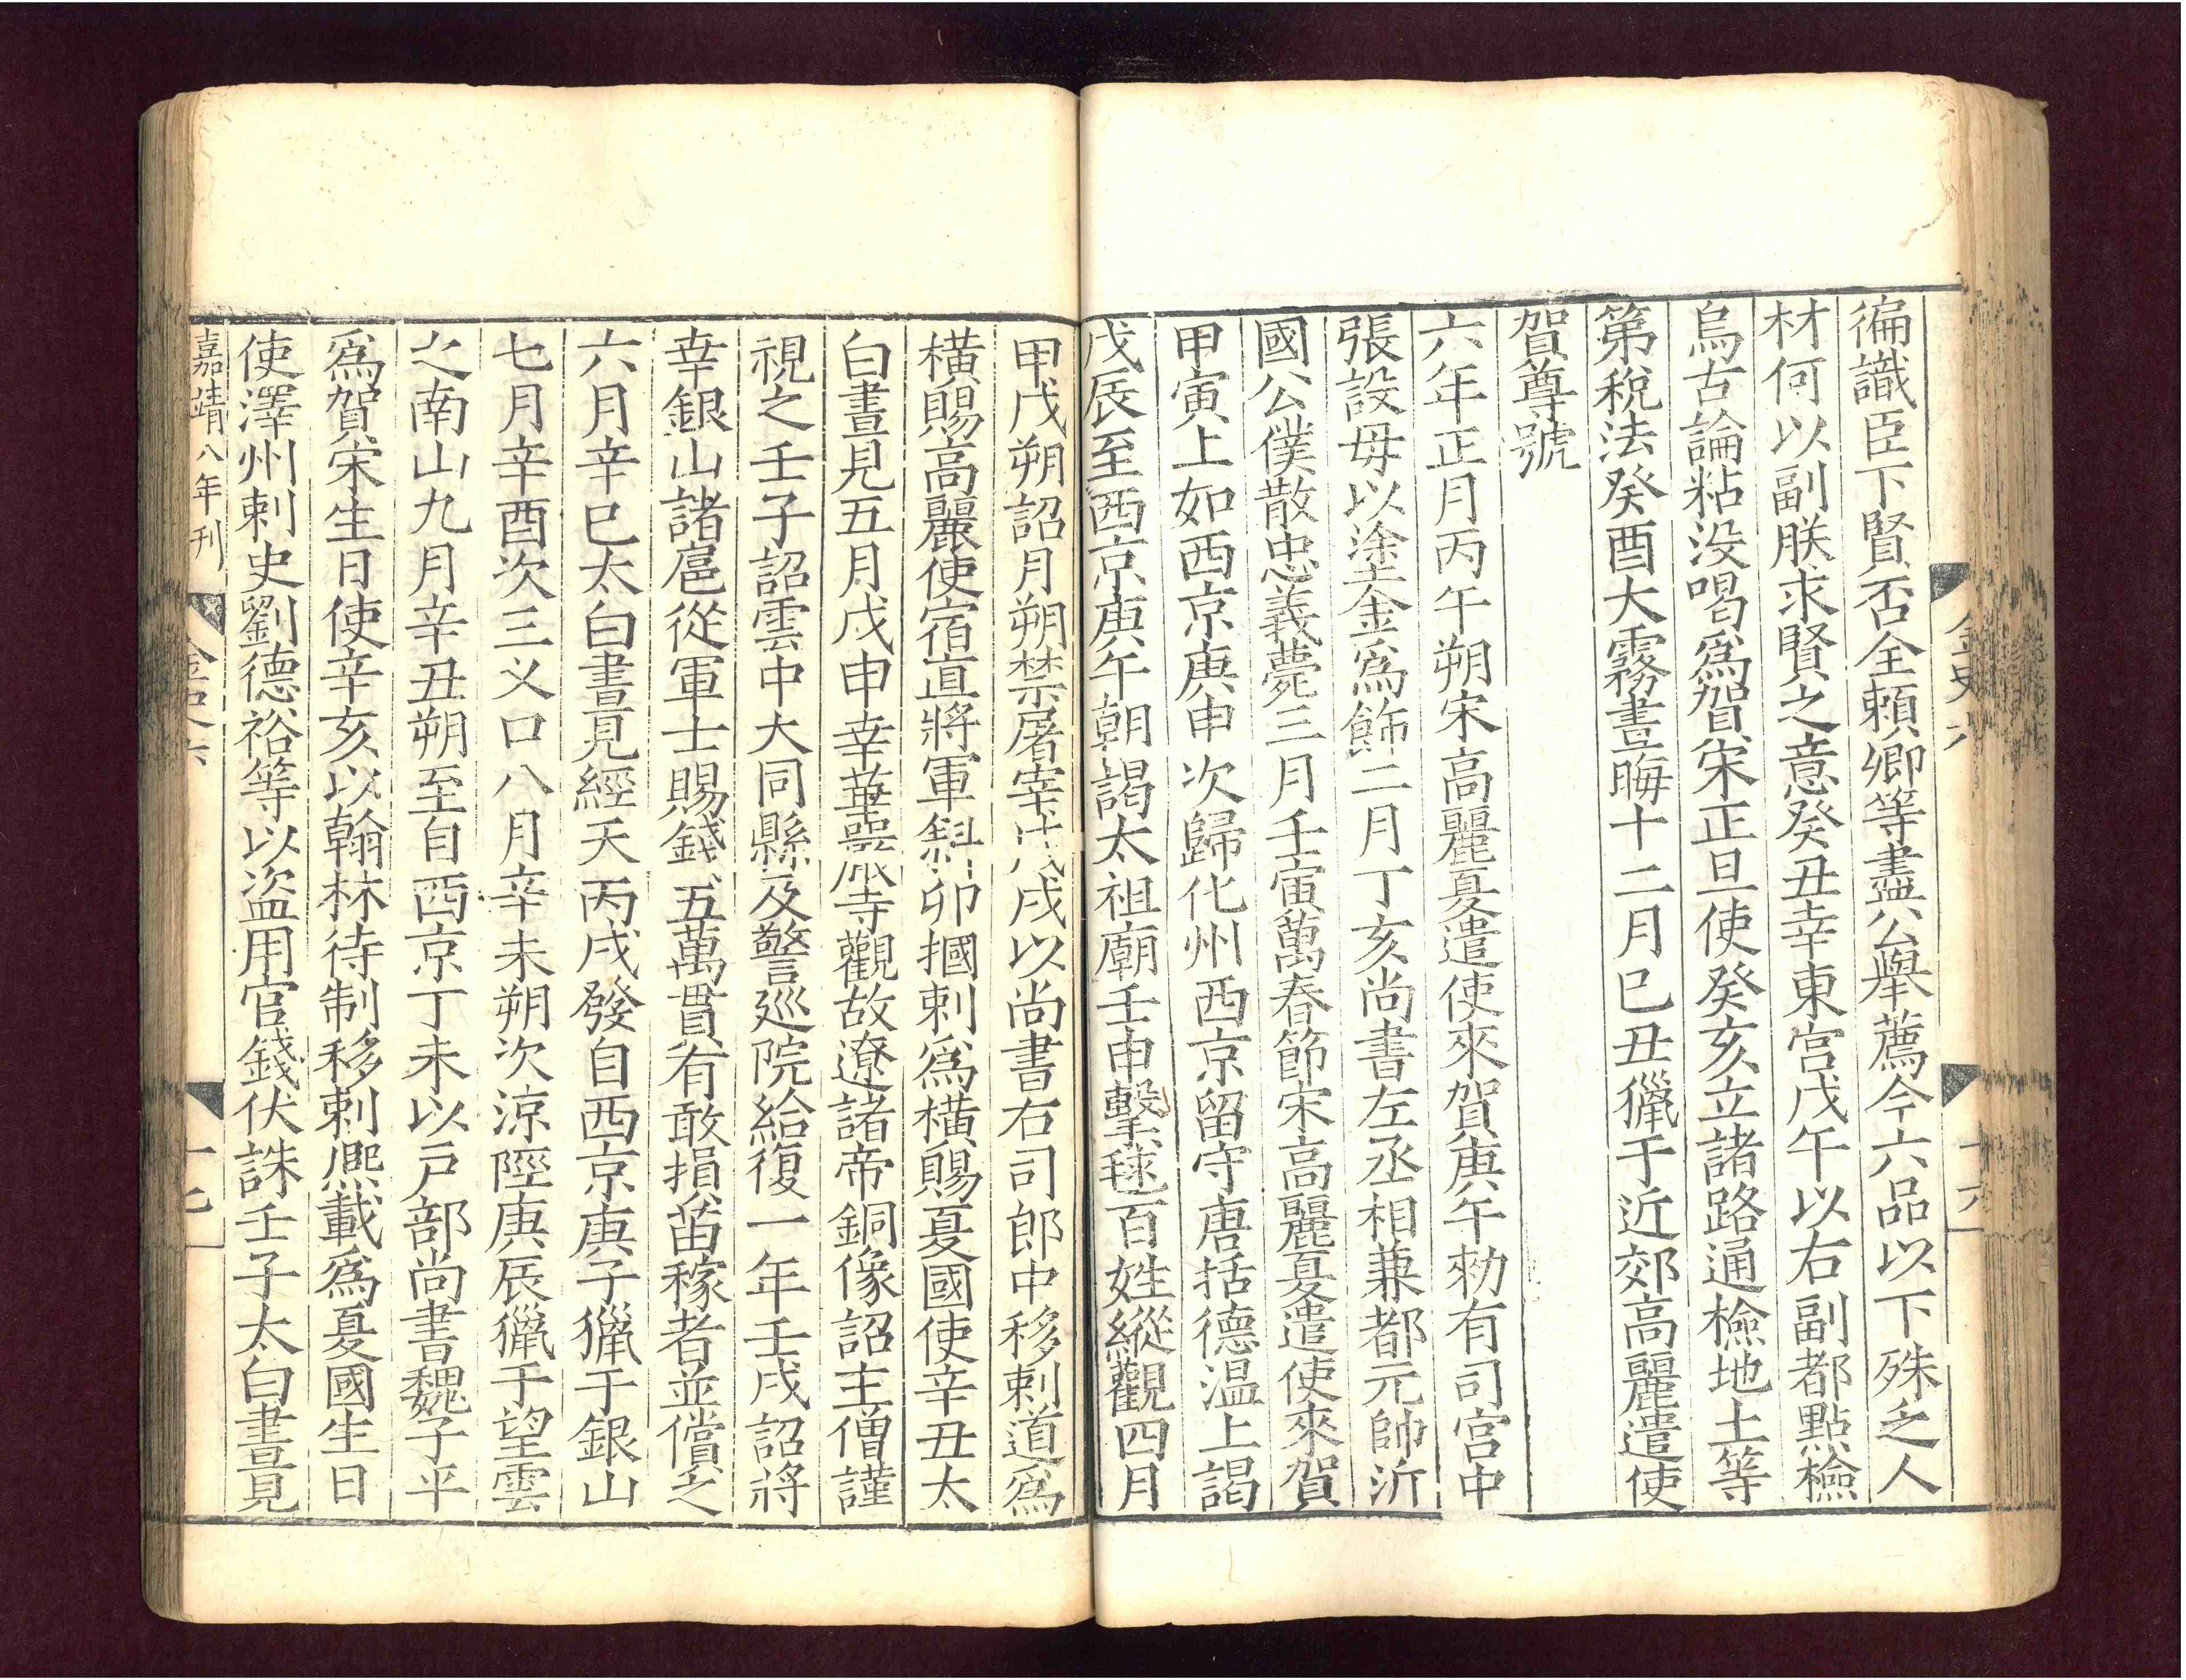 徧識臣下賢否全頼卿等盡公舉薦今六品以下殊乏人
材何以副朕求賢之意癸丑幸東宮戊午以右副都點檢
烏古論粘没喝爲賀宋正旦使癸亥立諸路通檢地土等
第稅法癸酉大霧晝晦十二月已丑獵于近郊高麗遣使
賀尊號
六年正月丙午朔宋高麗夏遣使來賀庚午勑有司宮中
張設毋以塗金爲飾二月丁亥尚書左丞相兼都元帥沂
國公僕散忠義薨三月壬寅萬春節宋高麗夏遣使來賀
甲寅上如西京庚申次歸化州西京留守唐括德温上謁
戊辰至西京庚午朝謁太祖廟壬申擊毬百姓縱觀四月
甲戌朔詔月朔禁屠宰戊戌以尚書右司郎中移剌道爲
橫賜高麗使宿直將軍斜卯摑剌爲橫賜夏國使辛丑太
白晝見五月戊申幸華嚴寺觀故遼諸帝銅像詔主僧謹
視之壬子詔雲中大同縣及警巡院給復一年壬戌詔將
幸銀山諸扈從軍士賜錢五萬貫有敢損苗稼者並償之
六月辛巳太白晝見經天丙戌發自西京庚子獵于銀山
七月辛酉次三义口八月辛未朔次涼陘庚辰獵于望雲
之南山九月辛丑朔至自西京丁未以戸部尚書魏子平
爲賀宋生日使辛亥以翰林待制移剌熈載爲夏國生日
使澤州刺史劉德裕等以盜用官錢伏誅壬子太白晝見
嘉靖八年刊
金史六
十七